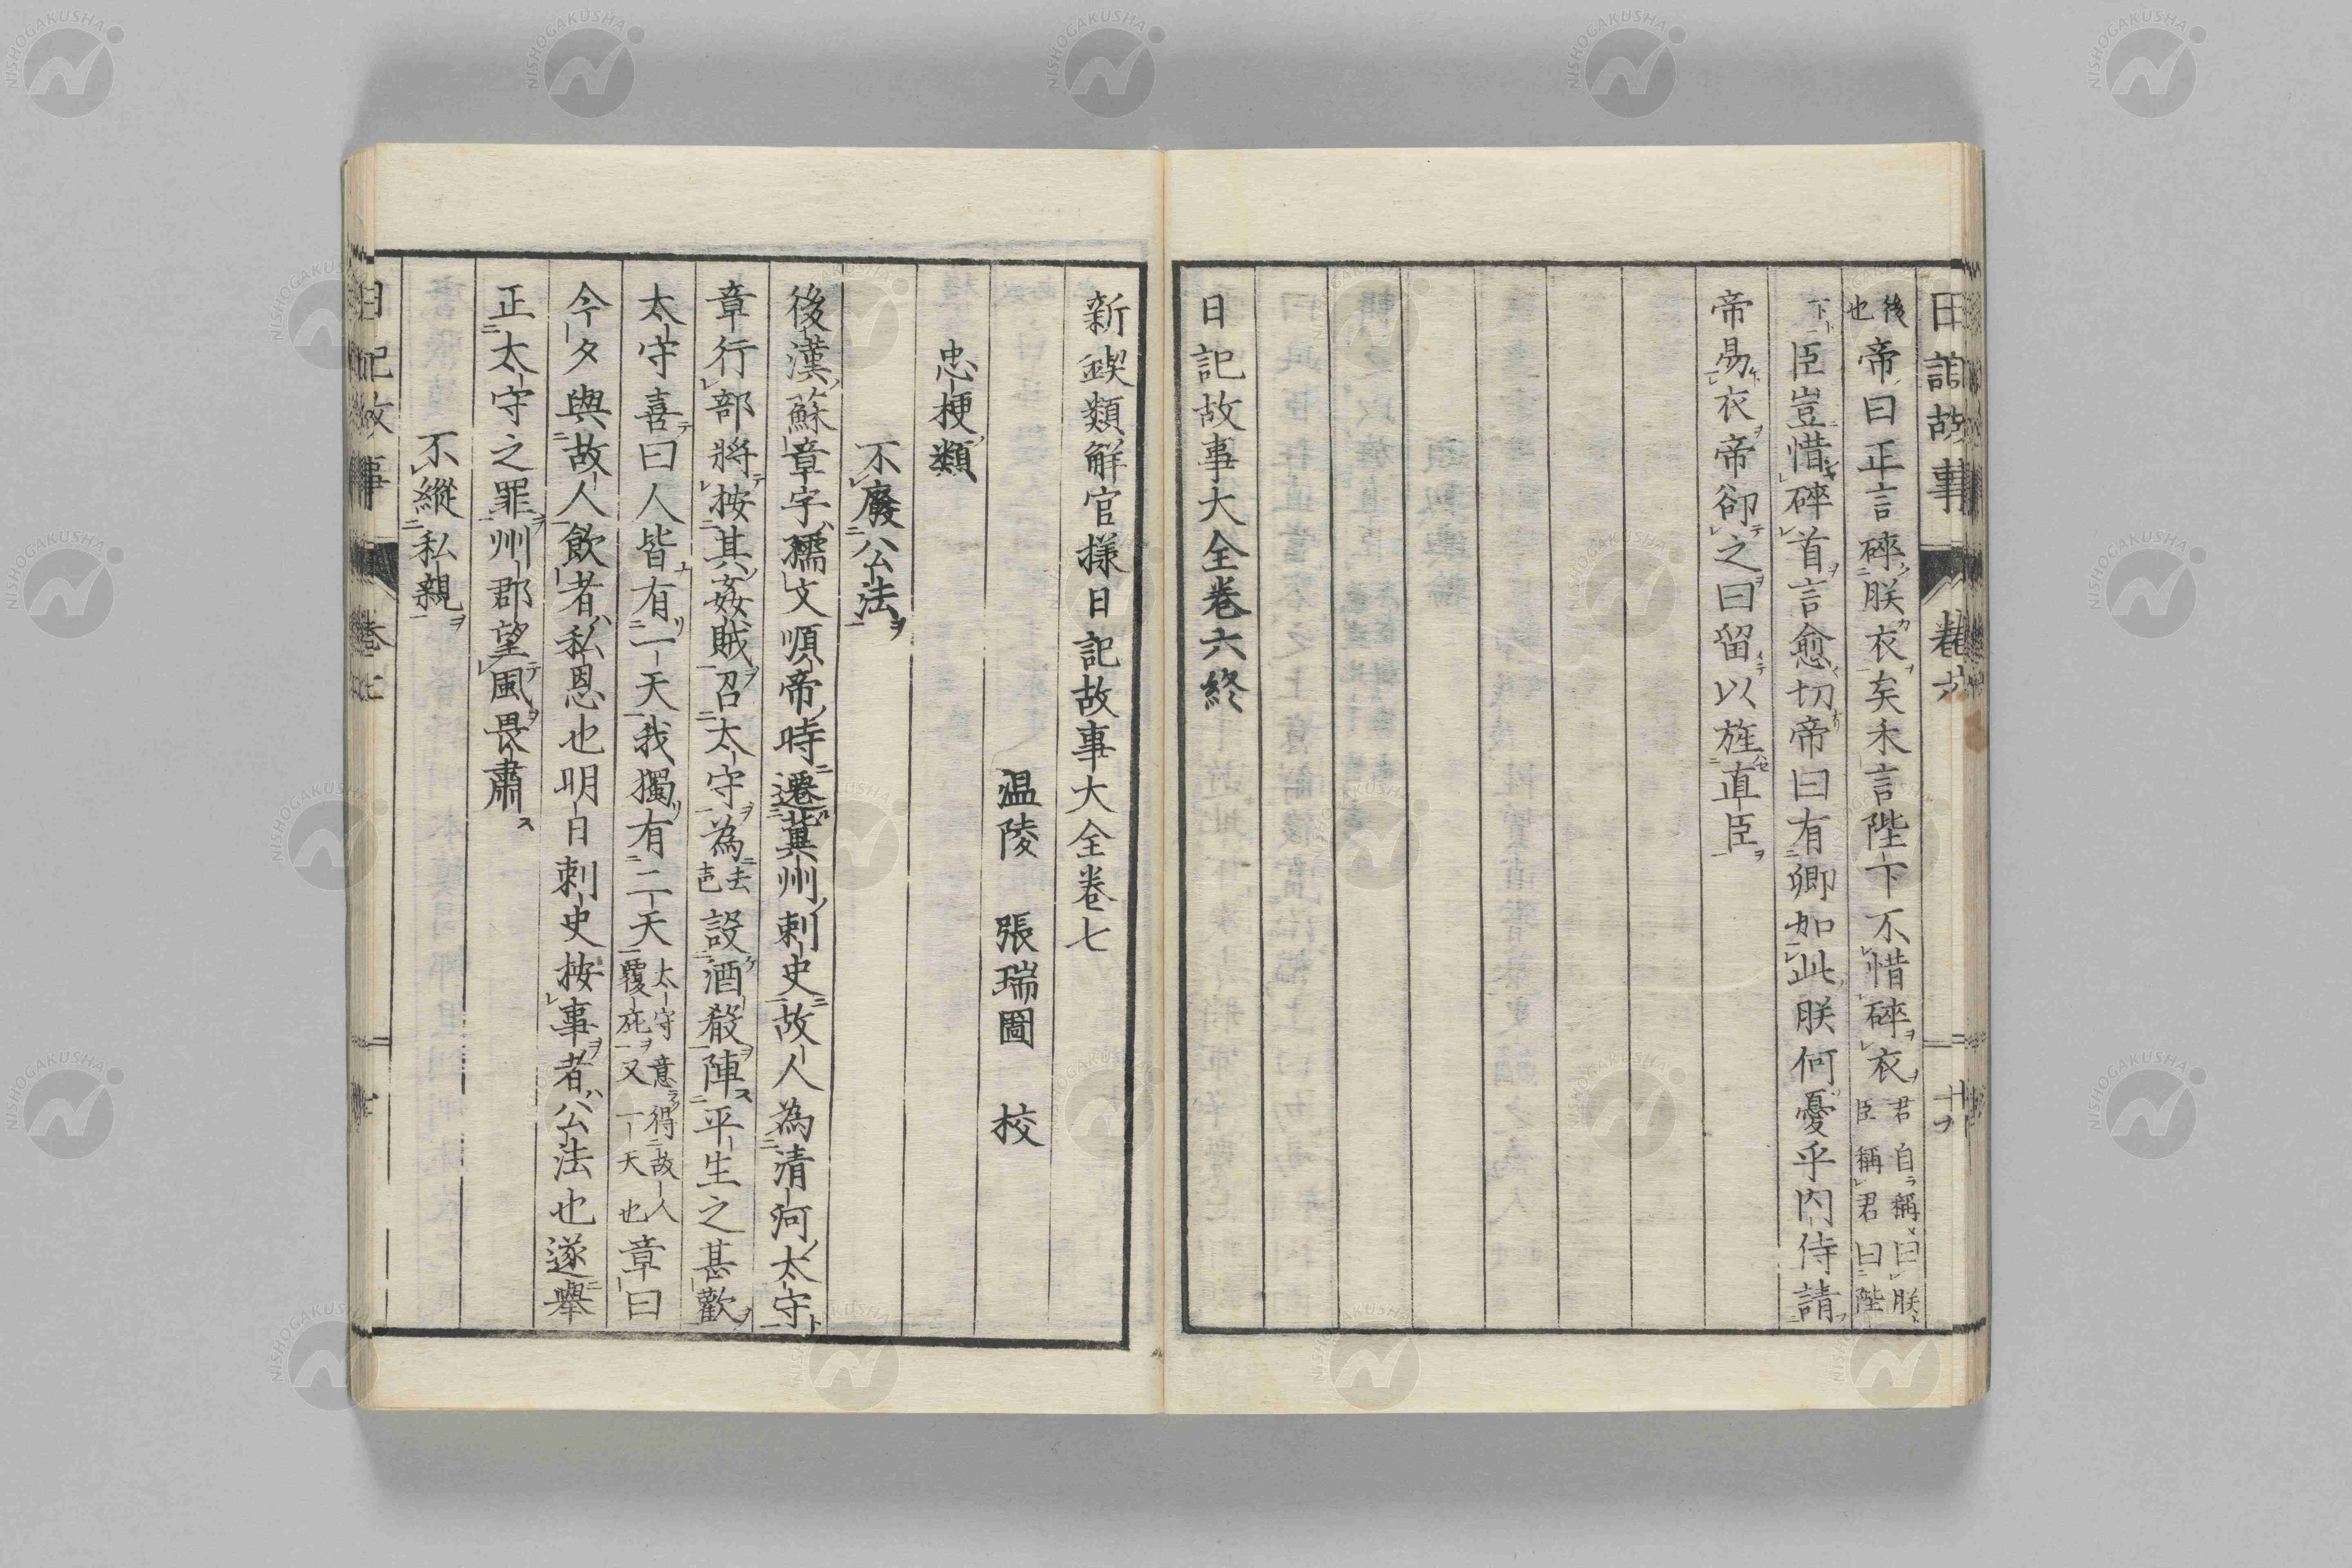 日記故事 卷六 十
後也帝曰正言碎朕衣矣禾言陛下不惜碎衣君自稱曰朕臣稱君曰陛
下臣豈惜碎首言愈切帝曰有卿如此朕何憂乎内侍請
帝易衣帝卻之曰留以旌直臣
日記故事大全卷六終
新鍥類解官様日記故事大全卷七
温陵 張瑞圖 校
忠梗類
不廢公法
後漢蘇章字孺文順帝時遷冀州刺史故人為清河太守
章行部將按其姦賊召太守為去声設酒殽陣平生之甚歡
太守喜曰人皆有一天我獨有二天太守意得故人覆庇又一天也章曰
今夕與故人飲者私恩也明日刺史按事者公法也遂舉
正太守之罪州郡望風畏肅
不縱私親
日記故事 卷七
NISHOGAKUSHA